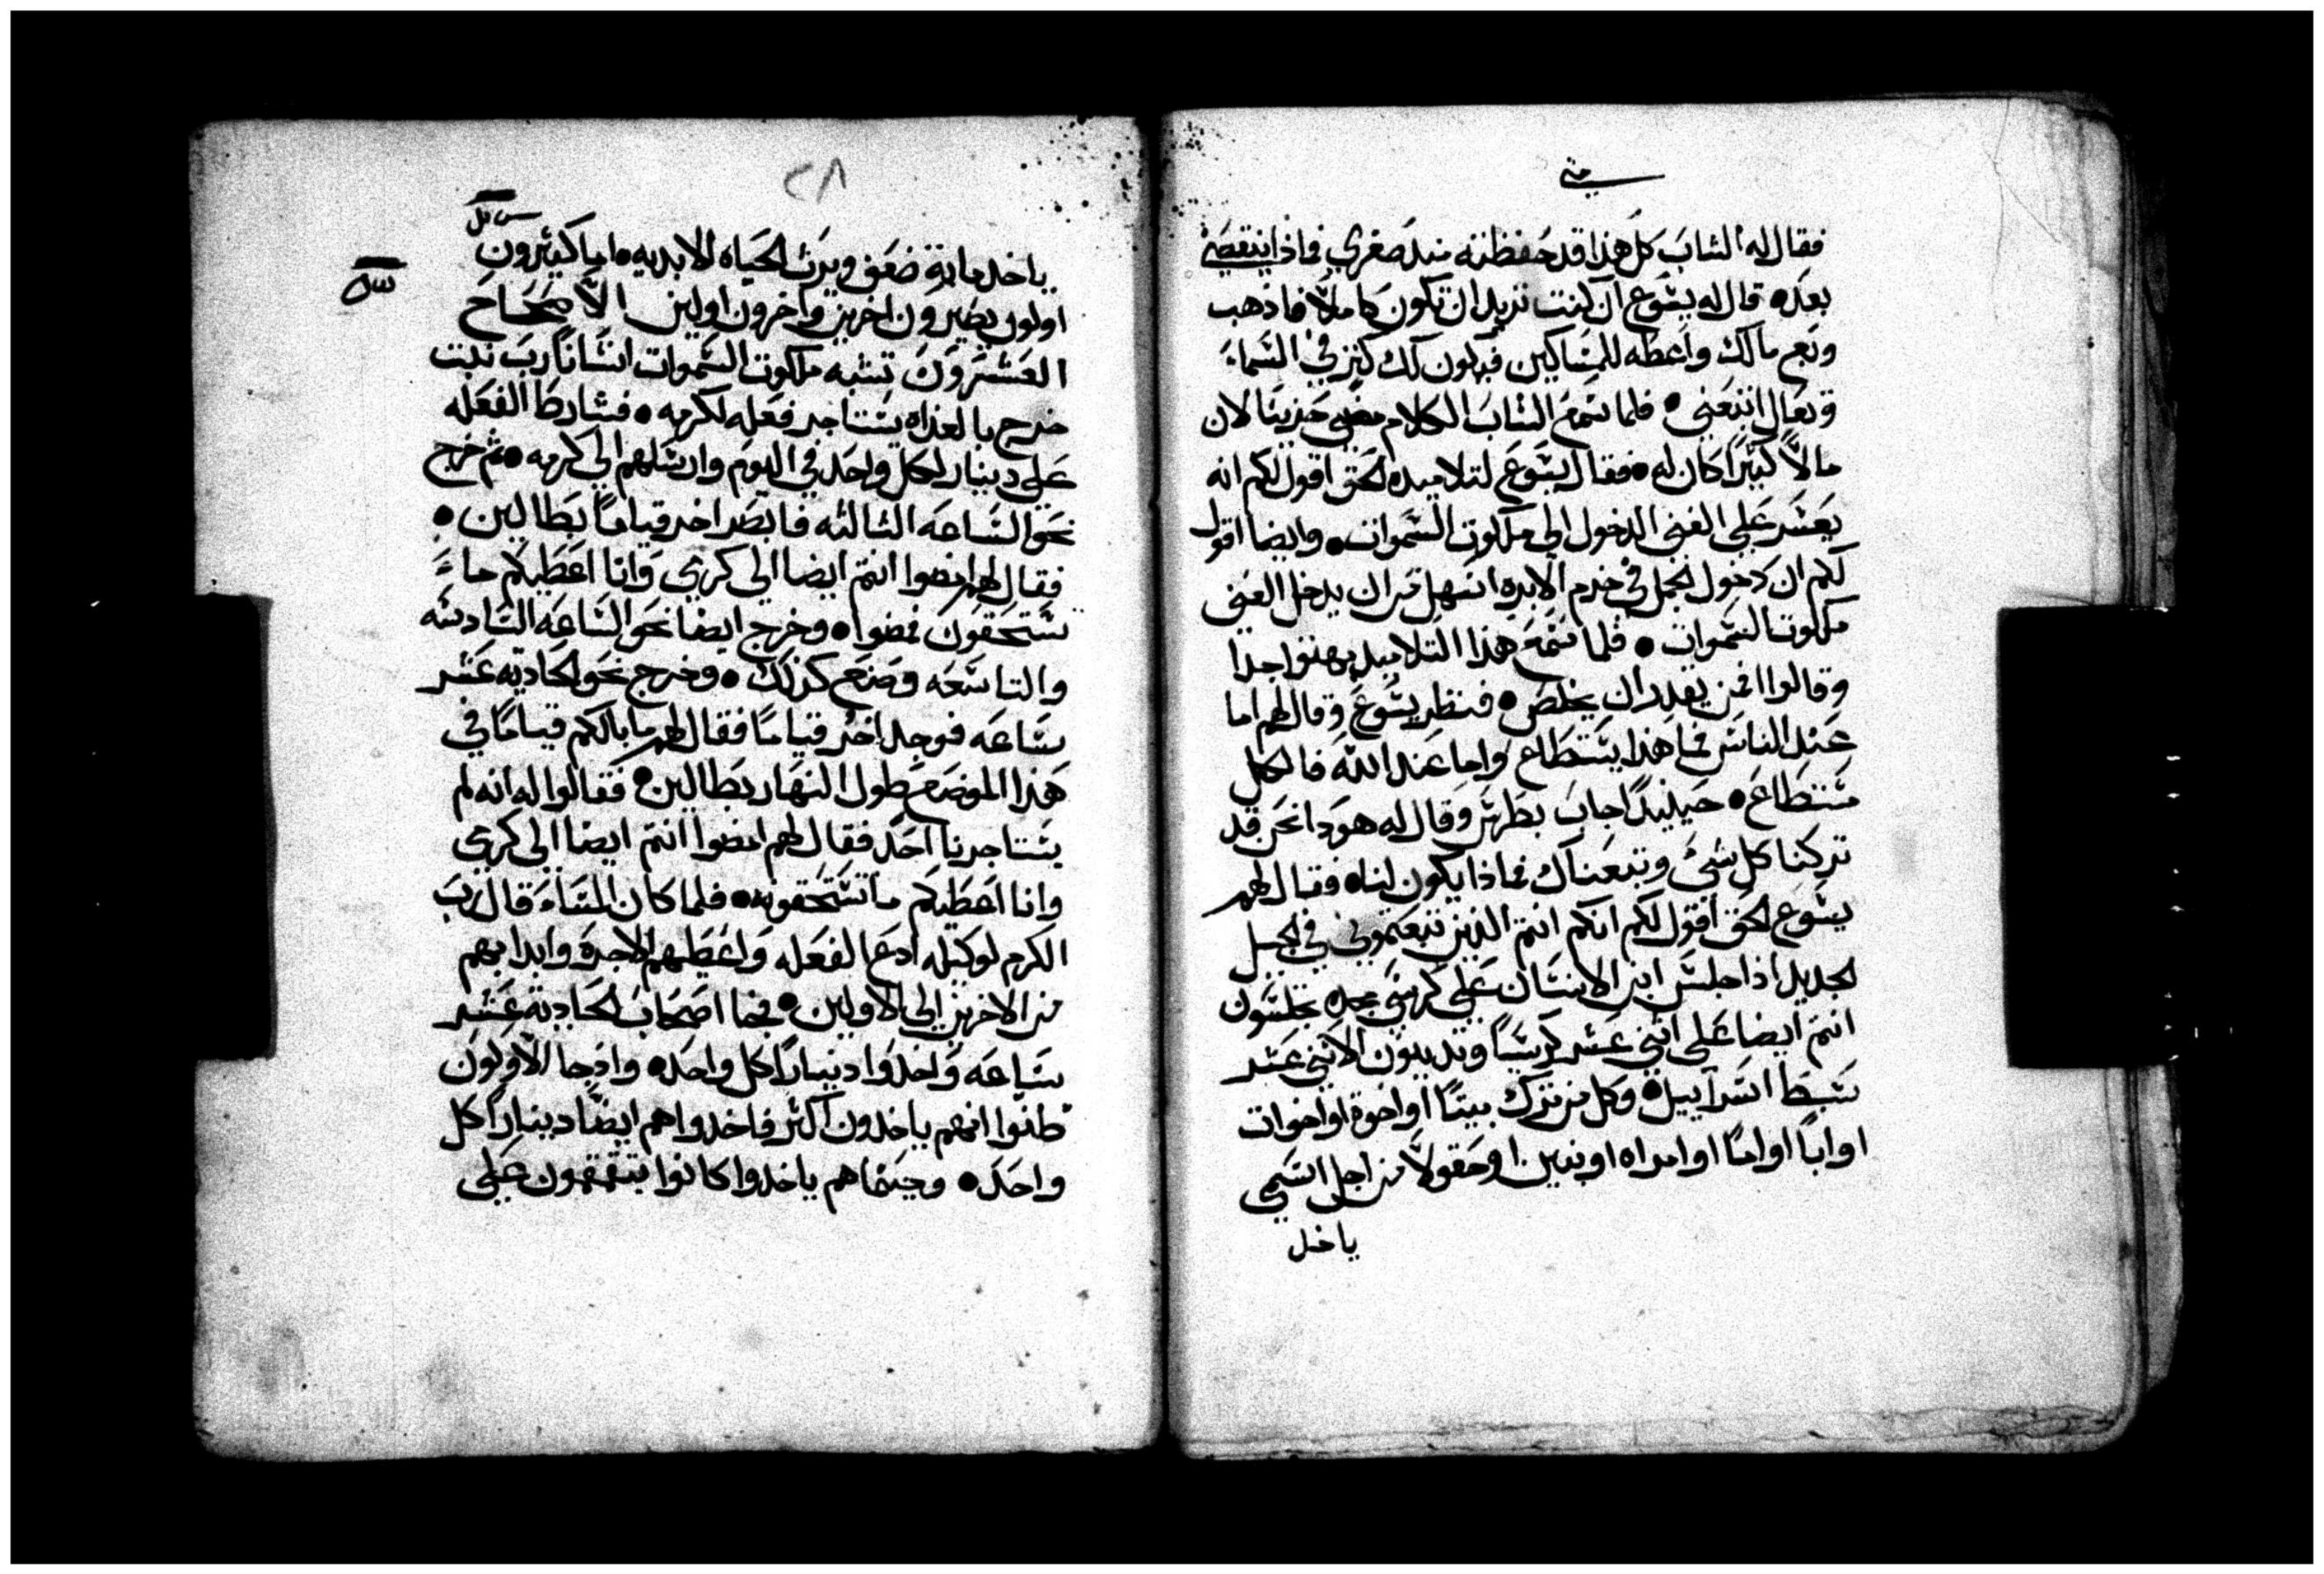 متى
فقال له الشاب كل هذا قد حفظته منذ صغري فماذا ينقصني
بعد• قال له يشوع ان كنت تريد ان تكون كاملاً فاذهب
وبع مالك واعطه للمساكين فيكون لك كنز في السماء
وتعال اتبعني • فلما سمع الشاب الكلام مضى حزينا لان
مالاً كثيراً كان له • فقال يشوع لتلاميده الحق اقول لكم انه
يعسر على الغني الدخول الى ملكوت السموات • وايضا اقول
لكم ان دخول الجمل في خرم الابره اسهل من ان يدخل الغني
ملكوت السموات • فلما سمع هذا التلاميد بهتوا جدا
وقالوا فمن يقدر ان يخلص • فنظر يشوع وقال لهم اما
عند الناس فما هذا يستطاع واما عند الله فالكل
مستطاع • حينيد اجاب بطرس وقال له هودا نحن قد
تركنا كل شي وتبعناك فماذا يكون لنا • فقال لهم
يشوع الحق اقول لكم انكم انتم الذين تبعتموني في الجيل
الجديد اذا جلس ابن الانسان على كرسي مجده تجلسون
انتم ايضا على اثني عشر كرسياً وتدينون الاثني عشر
سبط اسراييل • وكل من ترك بيتاً او اخوة او اخوات
او اباً او اماً او امراه او بنين او حقولاً من اجل اسمي
ياخد
٢٨
ياخد ماية ضعف ويرث الحياه الابديه • اما كثيرون
اولون يصيرون اخرين واخرون اولين الاصحاح
العشرون تشبه ملكوت السموات انساناً رب بيت
خرج بالغداه يستاجر فعله لكرمه • فشارط الفعله
على دينار لكل واحد في اليوم وارسلهم الى كرمه • ثم خرج
نحو الساعه الثالثه فابصر اخر قياماً بطالين •
فقال لهم امضوا انتم ايضا الى كرمي وانا اعطيكم ما
تستحقون فمضوا • وخرج ايضا نحو الساعه السادسه
والتاسعه وصنع كذلك • وخرج نحو الحاديه عشر
ساعه فوجد اخر قياماً فقال لهم ما بالكم قياماً في
هذا الموضع طول النهار بطالين • فقالوا له انه لم
يستاجرنا احد فقال لهم امضوا انتم ايضا الى كرمي
وانا اعطيكم ما تستحقونه • فلما كان المساء قال رب
الكرم لوكيله ادع الفعله واعطيهم الاجرة وابدا بهم
من الاخرين الى الاولين • فجا اصحاب الحادية عشر
ساعه واخدوا ديناراً كل واحد • واذ جا الاولون
ظنوا انهم ياخدون اكثر فاخدوا هم ايضاً ديناراً كل
واحد • وحينما هم ياخدوا كانوا يتقمقمون على